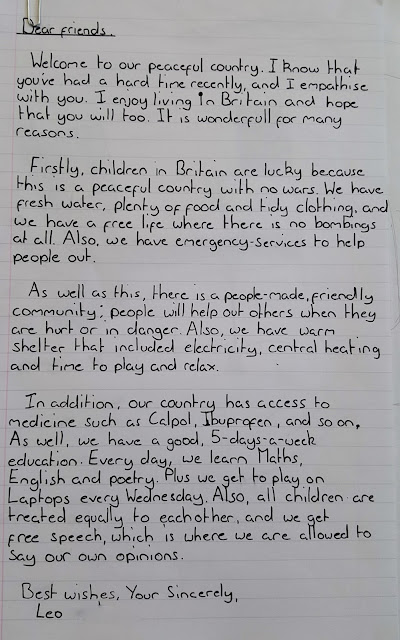 Dear friends.
Welcome to our peaceful country. I know that
you've had a hard time recently, and I empathise
with you. I enjoy living in Britain and hope
that you will too. It is wonderfull for many
reasons.
Firstly, children in Britain are lucky because
this is a peaceful country with no wars. We have
fresh water, plenty of food and tidy clothing, and
we have a free life where there is no bombings
at all. Also, we have emergency-services to help
people out.
As well as this, there is a people-made, friendly
community; people will help out others when they
are hurt or in danger. Also, we have warm
shelter that included electricity, central heating
and time to play and relax.
In addition, our country has access to
medicine such as Calpol, Ibuprofen, and so on,
As well, we have a good, 5-days-a-week
education. Every day, we learn Maths,
English and poetry. Plus we get to play on
Laptops every Wednesday. Also, all children are
treated equally to eachother, and we get
free speech, which is where we are allowed to
Say our own opinions.
Best wishes, Your Sincerely,
Leo